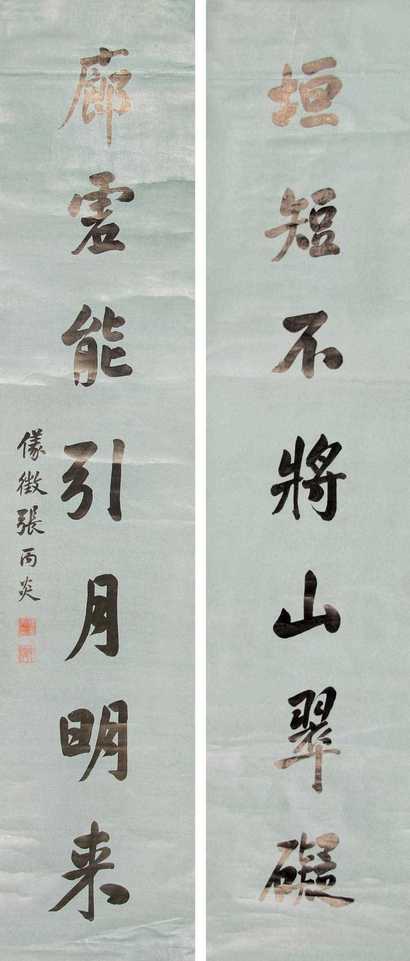 垣短不將山翠礙
廊虛能引月明来
儀徵張丙炎